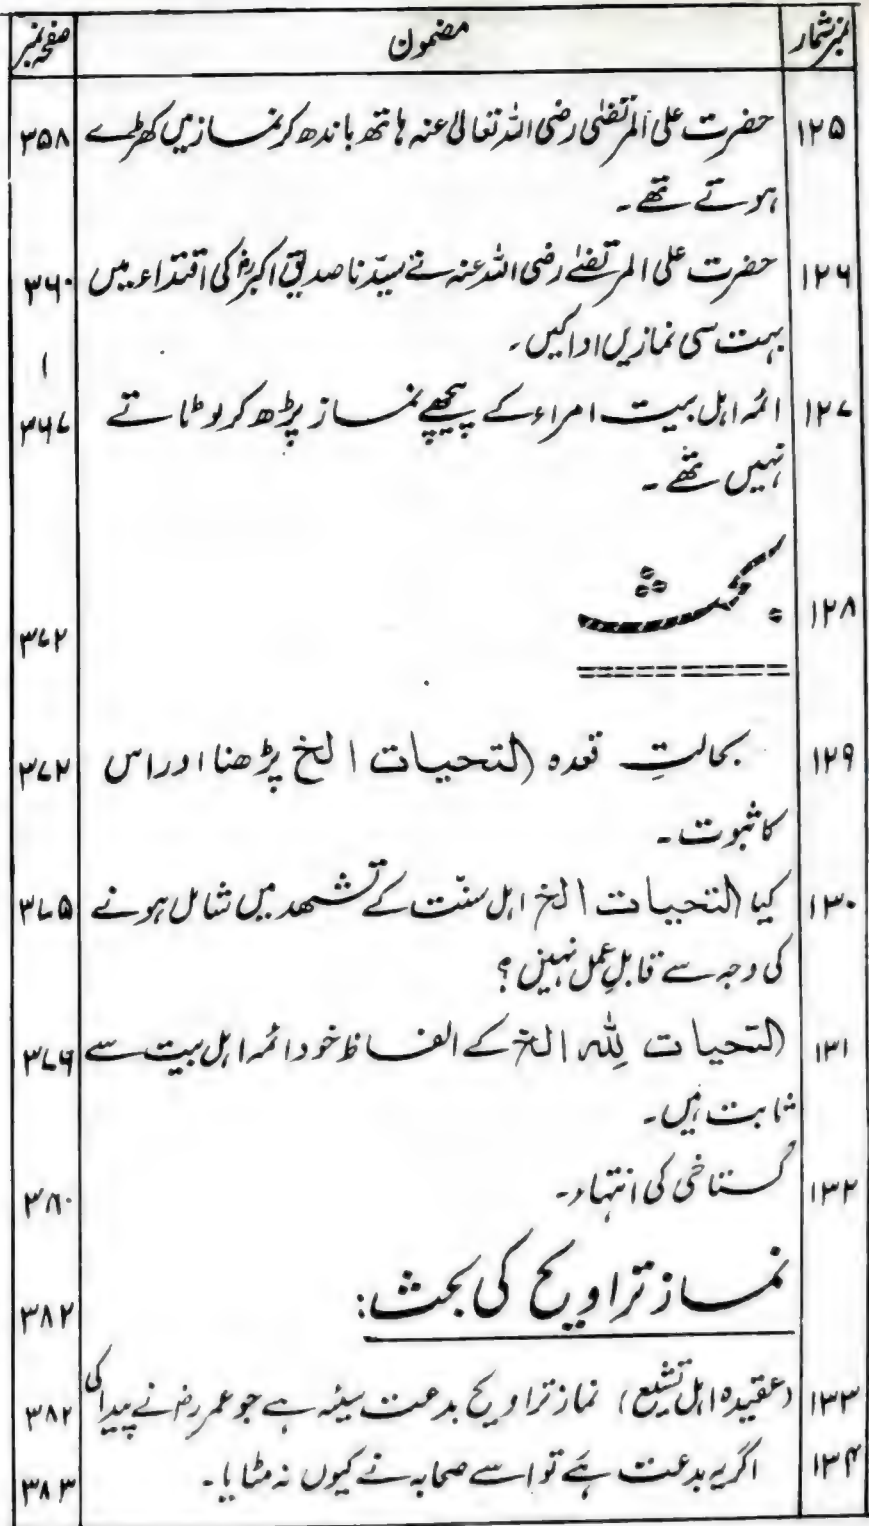 نمبر شمار مضمون صفحہ نمبر
۱۲۵ حضرت علی المرتضٰی رضی اللہ تعالٰی عنہ ہاتھ باندھ کر نماز میں کھڑے ۳۵۸
ہوتے تھے۔
۱۲۶ حضرت علی المرتضٰے رضی اللہ عنہ نے سیّدنا صدیق اکبرؓ کی اقتداء میں ۳۶۰
بہت سی نمازیں ادا کیں۔
۱۲۷ ائمہ اہل بیت امراء کے پیچھے نماز پڑھ کر لوٹاتے ۳۶۷
نہیں تھے۔
۱۲۸ بحث ۳۷۲
۱۲۹ بحالتِ قعدہ التحیات الخ پڑھنا اور اس ۳۷۲
کا ثبوت۔
۱۳۰ کیا التحیات الخ اہل سنّت کے تشھد میں شامل ہونے ۳۷۵
کی وجہ سے قابلِ عمل نہیں؟
۱۳۱ التحیات لِلّٰہ الخ کے الفاظ خود ائمہ اہل بیت سے ۳۷۶
ثابت ہیں۔
۱۳۲ گستاخی کی انتہاء۔ ۳۸۰
نماز تراویح کی بحث: ۳۸۲
۱۳۳ (عقیدہ اہل تشیع) نماز تراویح بدعت سیئہ ہے جو عمر رضؓ نے پیدا کی ۳۸۲
۱۳۴ اگر یہ بدعت ہے تو اسے صحابہ نے کیوں نہ مٹایا۔ ۳۸۳